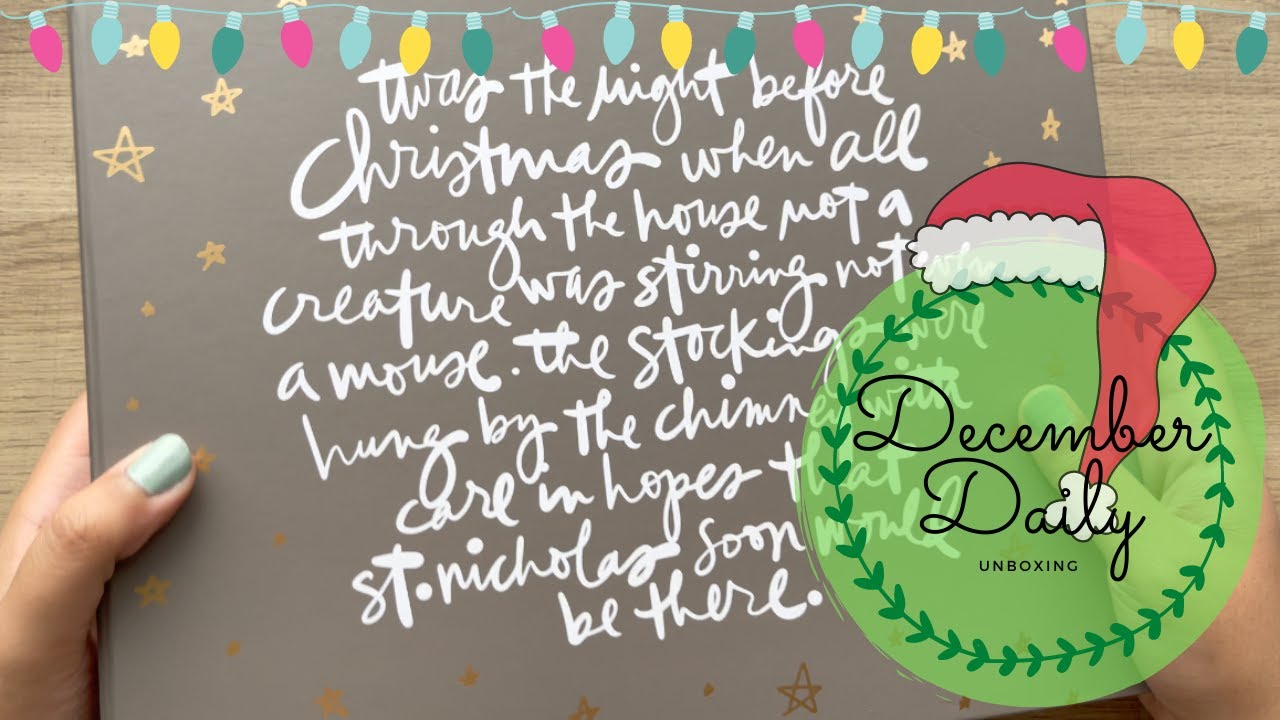 twas the night before
Christmas when all
through the house not a
creature was stirring not
a mouse. the stockings were
hung by the chimney with
care in hopes that
st. nicholas soon would
be there.
December
Daily
UNBOXING